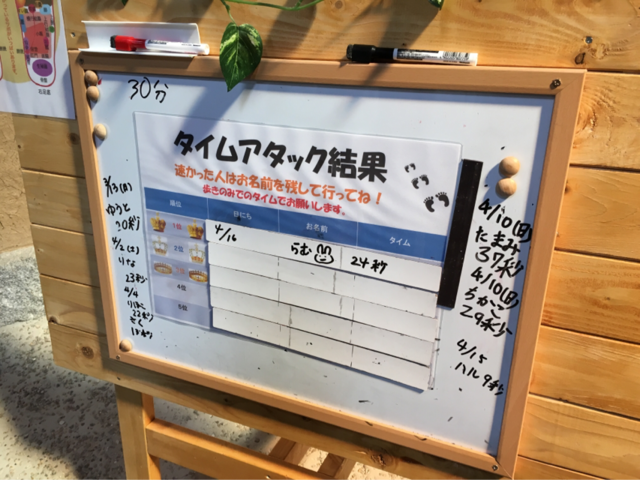 30分
タイムアタック結果
速かった人はお名前を残して行ってね！
歩きのみでのタイムでお願いします。
順位 ひにち お名前 タイム
1位 4/16 らむ 24秒
2位
3位
4位
5位
3/13(日)
ゆうと
20秒
4/2(土)
りな
23秒
4/4
22秒
4/10(日)
たまみ
37秒
4/10(日)
ちかこ
29秒
4/15
ハル 9秒